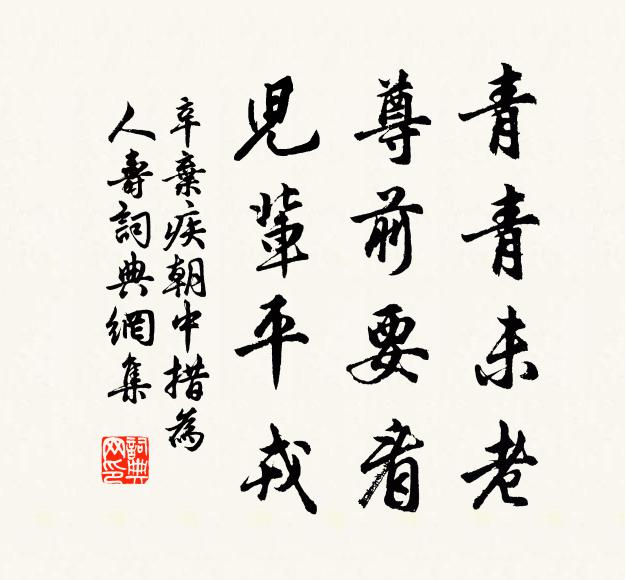 青青未老
尊前要看
兒輩平戎
辛棄疾朝中措為
人壽詞典網集
詞典网印